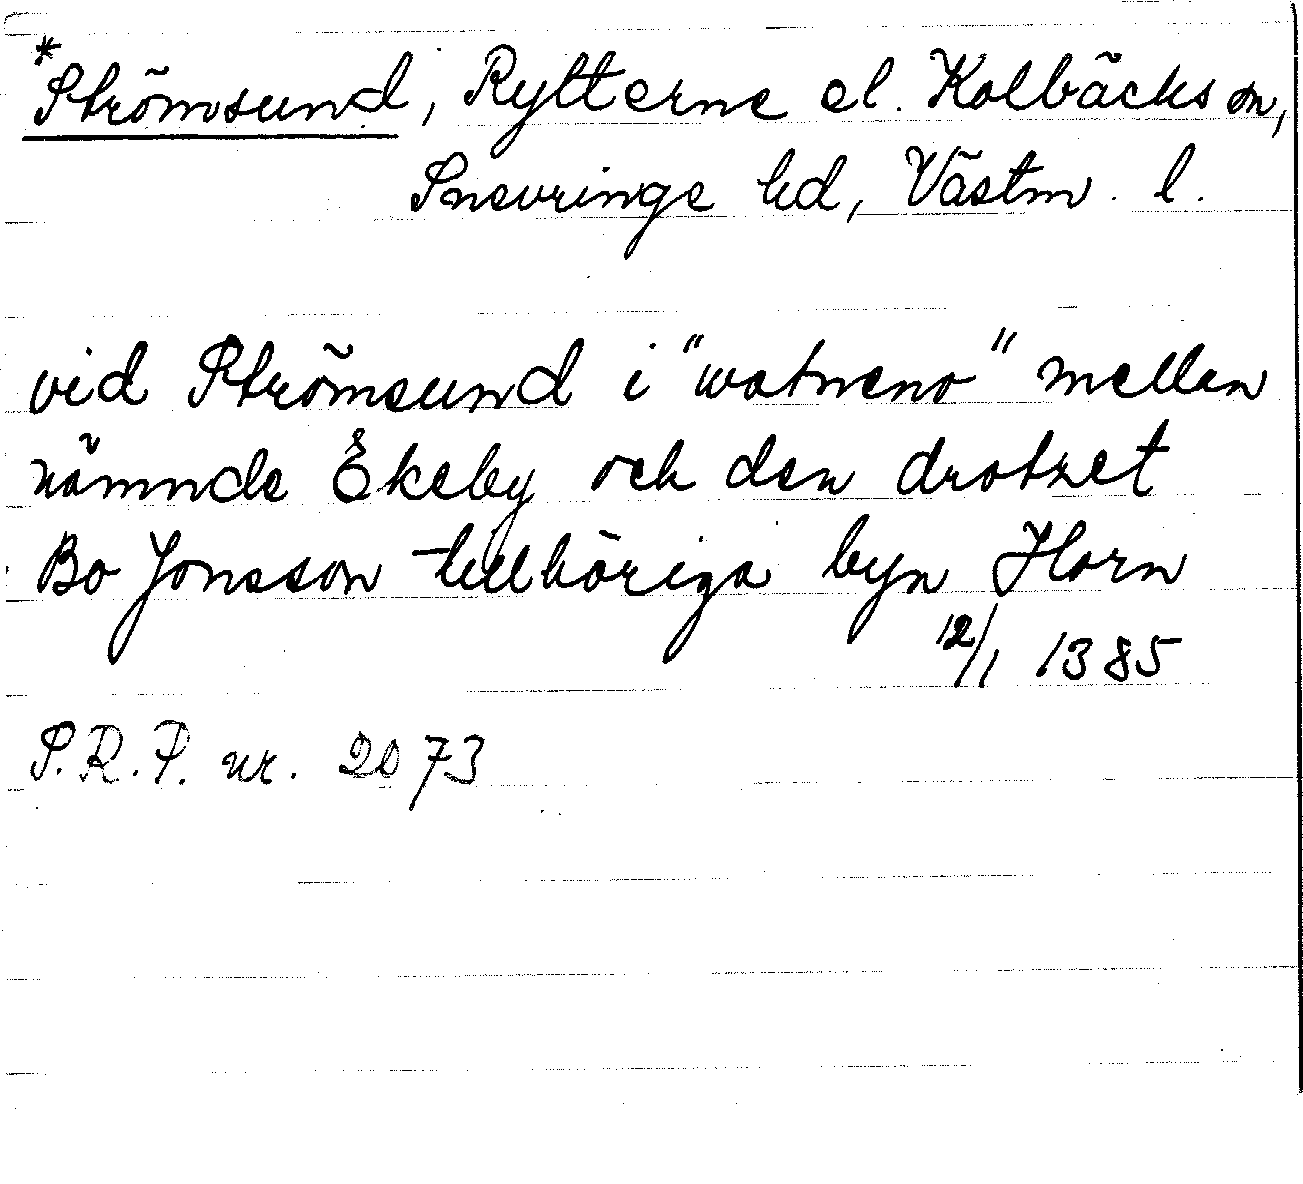 *Strömsund, Rytterne el. Kolbäcks sn,
Snevringe hd, Västm. l.
vid Strömsund i "watneno" mellan
nämnde Åkeby och den drotzet
Bo Jonsson tillhöriga byn Horn
12/1 1385
S.R.P. nr. 2073